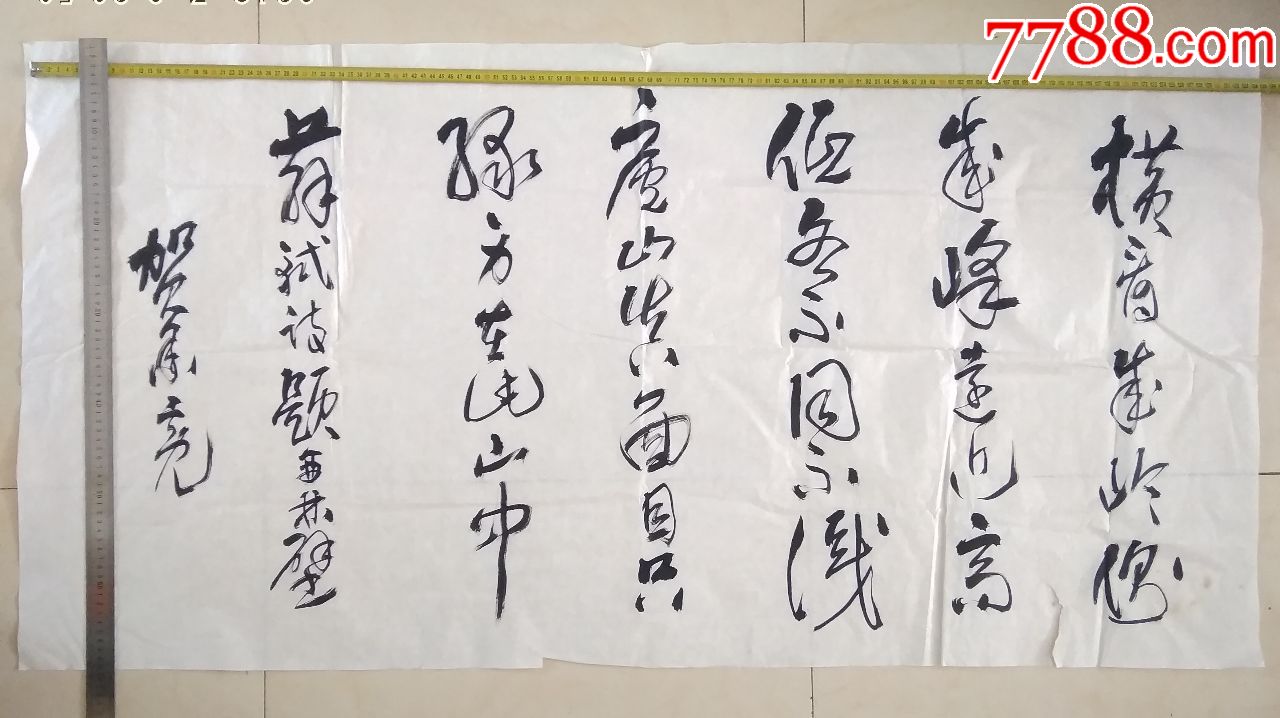 7788.com
横看成岭侧
成峰遠近高
低各不同不識
庐山真面目只
缘身在此山中
蘇軾詩題西林壁
贺亮